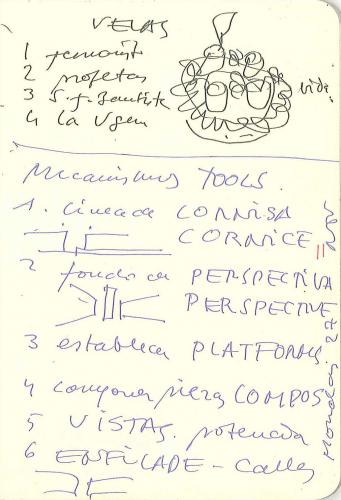 VELAS
1
2 profetas
3 S. J. Bautista
4 la Vgen
vide.
Mecanismos TOOLS.
1. linea de CORNISA
CORNICE
2 fondo de PERSPECTIVA
PERSPECTIVE
3 establecer PLATFORMS
4 componer piezas COMPOS
5 VISTAS. potencia
6 ENFILADE - Calles
Monday. 27 NOV